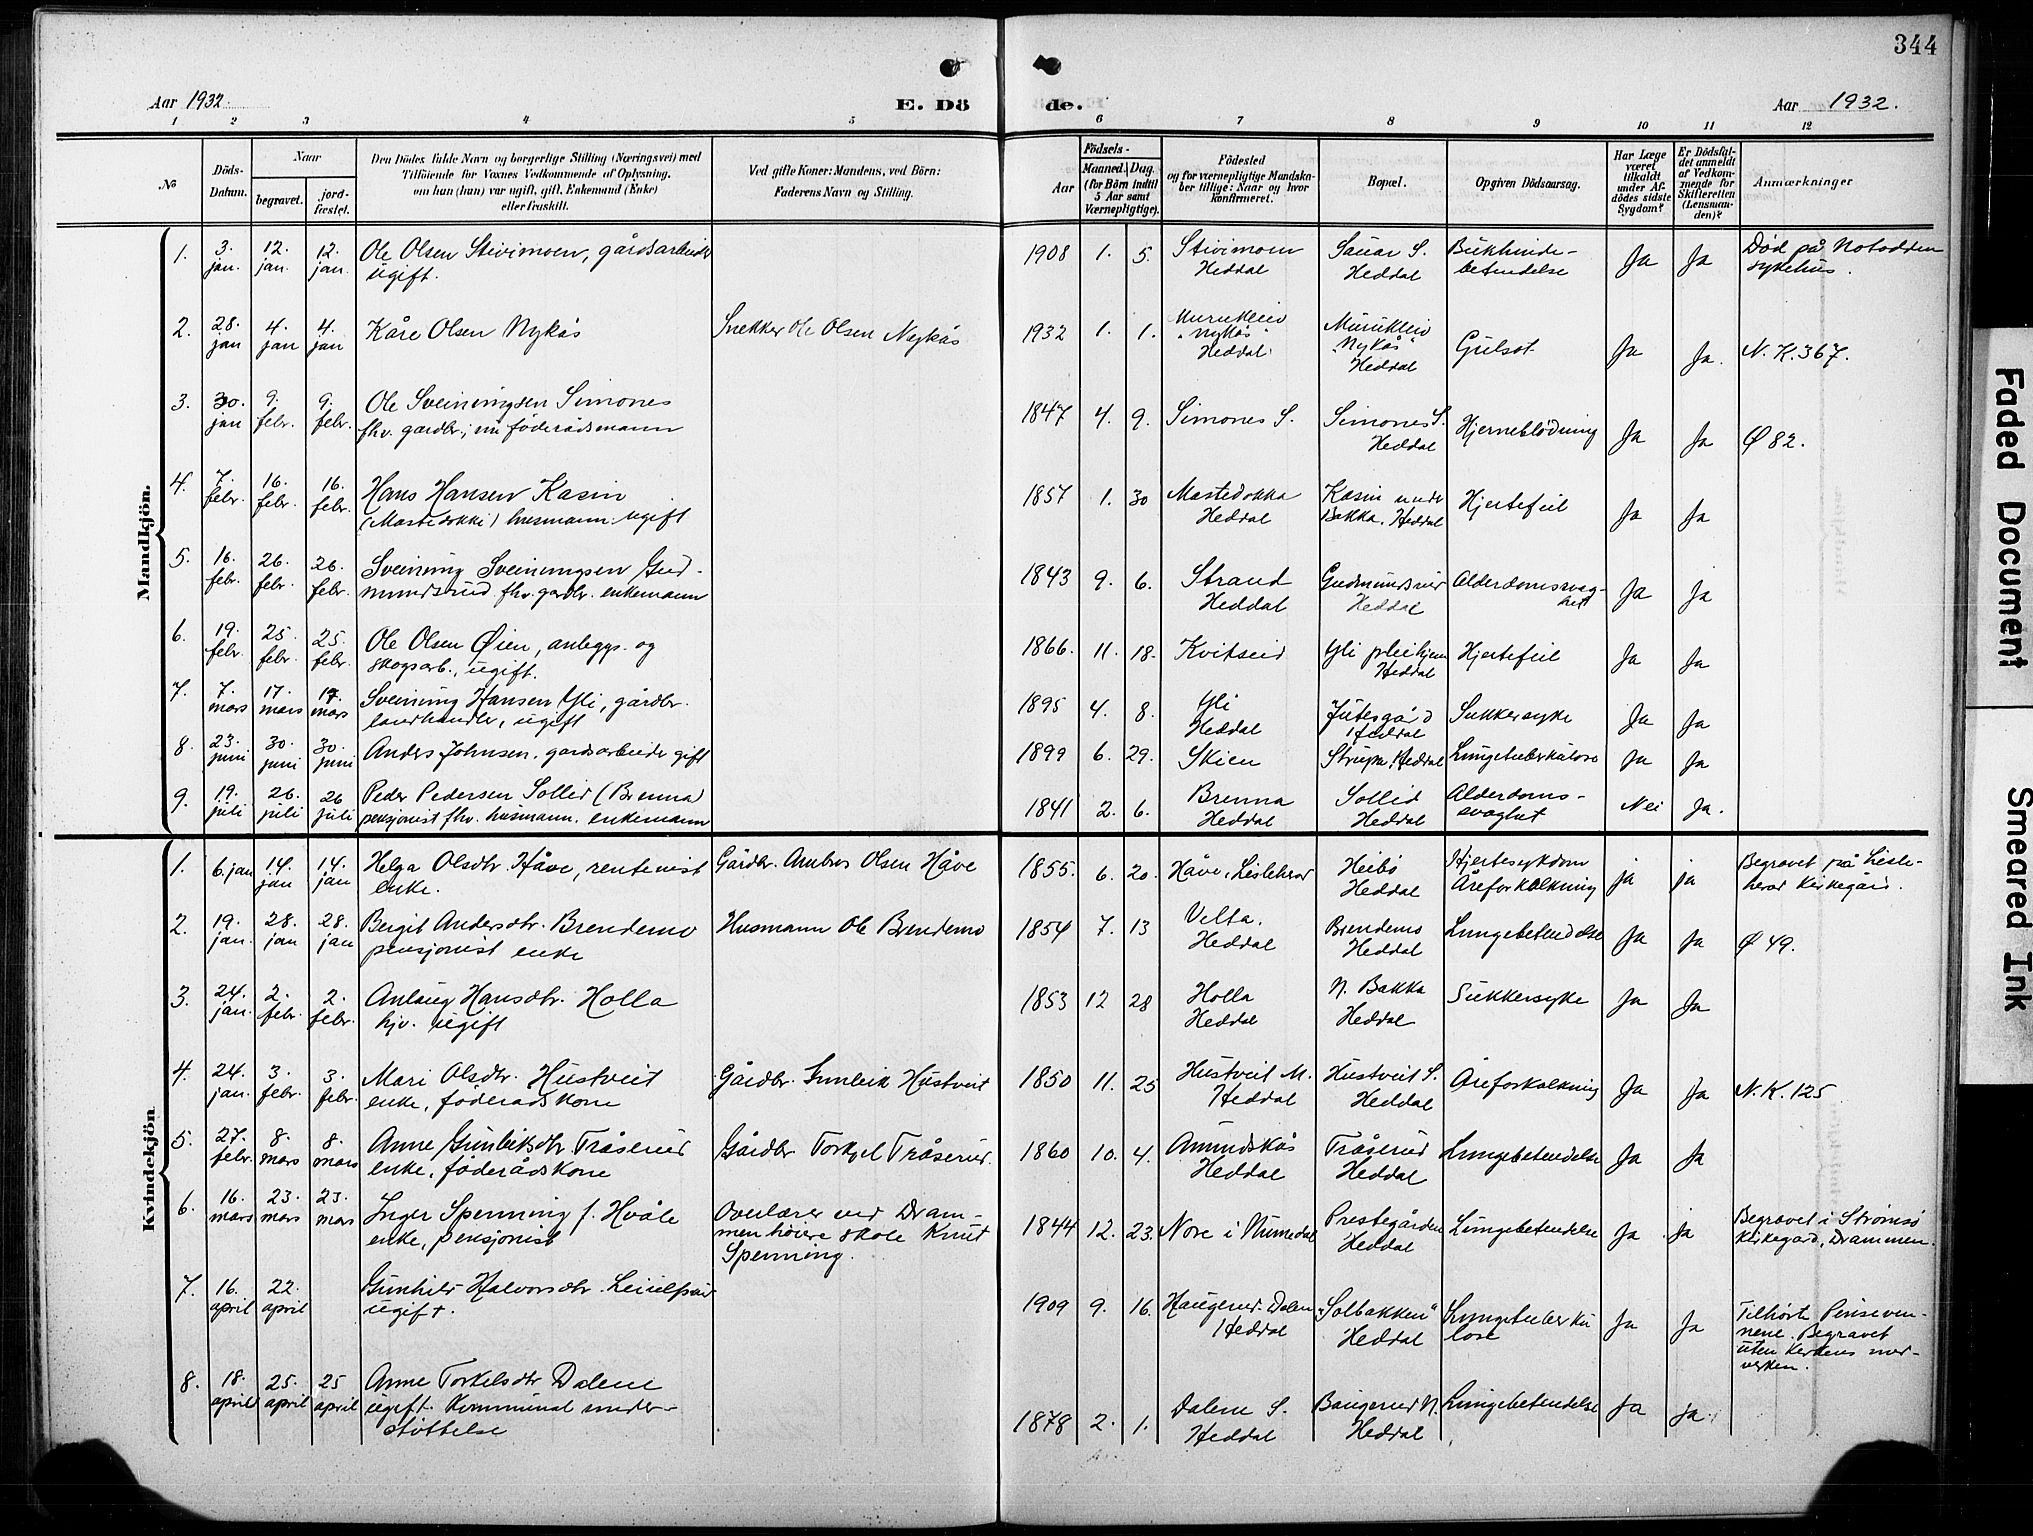 344
Aar 1932.
E. Dö
de.
Aar 1932.
1 2 3 4 5 6 7 8 9 10 11 12
№
Döds-
Datum.
Naar
begravet.
jord-
fæstet.
Den Dödes fulde Navn og borgerlige Stilling (Næringsvei) med
Tilföiende for Voxnes Vedkommende af Oplysning,
om han (hun) var ugift, gift, Enkemand (Enke)
eller fraskilt.
Ved gifte Koner: Mandens, ved Börn:
Faderens Navn og Stilling.
Födsels-
Aar
Maaned. Dag.
(for Börn indtil
5 Aar samt
Værnepligtige).
Födested
og for værnepligtige Mandska-
ber tillige: Naar og hvor
konfirmeret.
Bopæl.
Opgiven Dödsaarsag.
Har Læge
været
tilkaldt
under Af-
dödes sidste
Sygdom?
Er Dödsfal-
det anmeldt
af Vedkom-
mende for
Skifteretten
(Lensman-
den)?
Anmærkninger
Mandkjön.
1. 3. jan. 12. jan. 12. jan. Ole Olsen Stivimoen, gårdsarbeider
ugift.
1908 1. 5. Stivimoen Heddal Sauar S. Heddal Bukhinde-
betendelse Ja Ja Død på Notodden
sykehus.
2. 28. jan 4. jan 4. jan Kåre Olsen Nykås Snekker Ole Olsen Nykås
1932 1. 1. Murukleiv "Nykås" Heddal Murukleiv "Nykås" Heddal Gulsot Ja Ja. N. K. 367.
3. 30. jan 9. febr. 9. febr. Ole Sveiningsen Simones
fhv. gardbr., nu föderådsmann
1847 4. 9. Simones S. Simones S. Heddal Hjerneblödning Ja Ja Ø 82.
4. 7. febr. 16. febr. 16. febr. Hans Hansen Kasin
(Mastedokki) husmann. ugift
1857 1. 30 Mastedokka Heddal Kasin under Bakka, Heddal Hjertefeil Ja Ja
5. 16. febr. 26. febr. 26. febr. Sveinung Sveinungsen Gud-
mundsrud fhv. gardbr. enkemann
1843 9. 6. Strand Heddal Gudmundsrud Heddal Alderdomssvag-
het Ja Ja
6. 19. febr. 25. febr. 25. febr. Ole Olsen Øien, anleggs- og
skogsarb., ugift.
1866. 11. 18. Kvitseid Yli pleihjem Heddal Hjertefeil Ja Ja
7. 7. mars 17. mars 17. mars Sveinung Hansen Yli, gårdbr.
landhandler, ugift
1895 4. 8. Yli Heddal Jutesgård Heddal Sukkersyke Ja Ja
8. 23. juni 30. juni 30. juni Anders Johnsen, gardsarbeider gift
1899 6. 29. Skien Strupa, Heddal Lungetuberkulose Ja Ja
9. 19. juli 26. juli 26 juli Peder Pedersen Sollid (Brenna)
pensjonist fhv. husmann. enkemann
1841 2. 6. Brenna Heddal Sollid Heddal Alderdoms-
svaghet Nei Ja.
Kvindekjön.
1. 6. jan 14. jan 14. jan Helga Olsdtr. Håve, rentenist
enke. Gårdbr. Ambros Olsen Håve
1855. 6. 20. Håve, Lisleherad Heibö Heddal Hjertesykdom
Åreforkalkning ja ja Begravet på Lisle-
herad kirkegård.
2. 19. jan. 28. jan 28. jan Bergit Andersdtr. Brendemo
pensjonist enke Husmann Ole Brendemo
1854 7. 13 Velta. Heddal Brendemo Heddal Lungebetendelse Ja Ja Ø 49.
3. 24. jan. 2. febr. 2. febr. Anlaug Hansdtr. Holla
hjv. ugift
1853 12 28 Holla Heddal N. Bakka Heddal Sukkersyke Ja Ja
4. 24. jan. 3. febr. 3. febr. Mari Olsdtr. Hustveit
enke, föderådskone Gårdbr. Gunleik Hustveit
1850 11. 25 Hustveit M. Heddal Hustveit S. Heddal Åreforkalkning Ja Ja N. K. 125
5. 27. febr. 8. mars 8. mars Anne Gunleiksdtr Tråserud
enke, föderådskone Gårdbr Torkjel Tråserud.
1860 10. 4. Amundskås Heddal Tråserud Heddal Lungebetendelse Ja Ja
6. 16. mars 23. mars 23. mars Inger Spenning f. Hvåle
enke, pensjonist Overlærer ved Dram-
men höiere skole Knut
Spenning.
1844 12. 23. Nore i Numedal Prestegården Heddal Lungebetendelse Ja Ja Begravet i Strömsö
kirkegård, Drammen.
7. 16. april 22. april Gunhild Halvorsdtr.
ugift.
1909 9. 16. Haugerud-Dalen Heddal "Solbakken" Heddal Lungetuberku
lose Ja Ja Tilhörte Pinseven-
nene. Begravet
uten kirkens med-
virken.
8. 18. april 25. april 25 april Anne Torkelsdtr Dalene
ugift. Kommunal under-
stöttelse
1878 2. 1. Dalene S. Heddal Baugerud N. Heddal Lungebetendelse Ja ja.
Faded Document
Smeared Ink